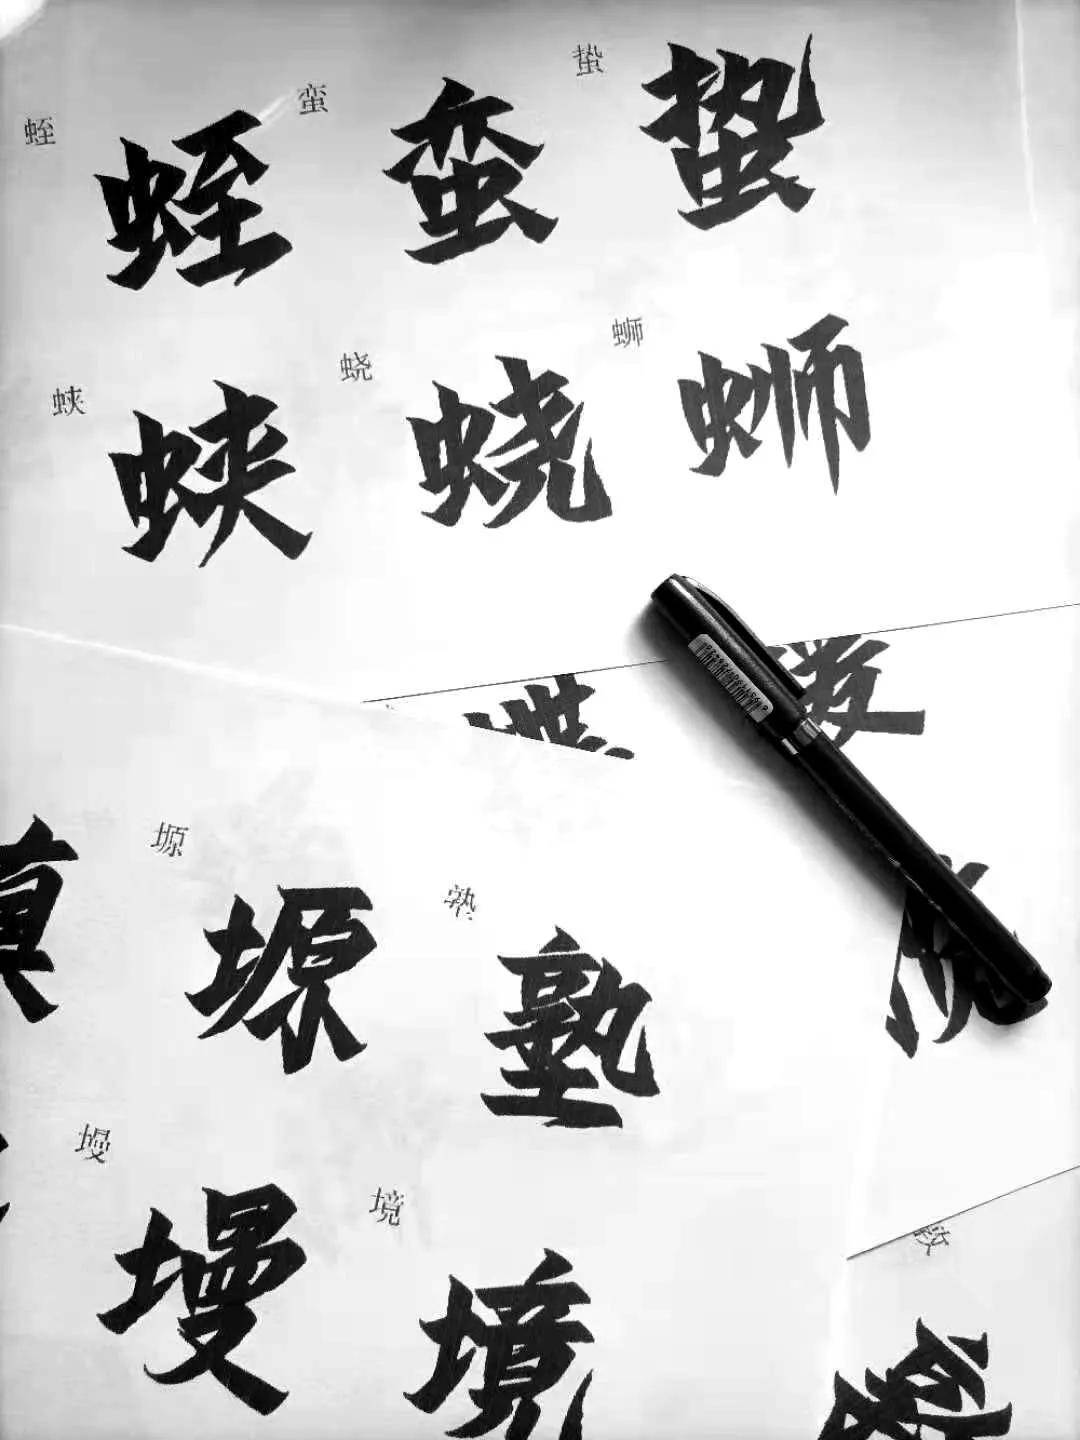 蛭 蛮 蛰
蛭 蛮 蛰
蛱 蛲 蛳
蛱 蛲 蛳
塬 塾
塬 塾
墁 境
墁 境